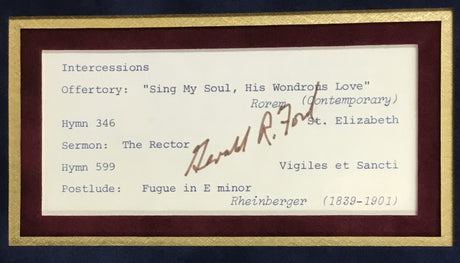 Intercessions
Offertory: "Sing My Soul, His Wondrous Love"
Rorem (Contemporary)
Hymn 346 St. Elizabeth
Gerald R. Ford
Sermon: The Rector
Hymn 599 Vigiles et Sancti
Postlude: Fugue in E minor
Rheinberger (1839-1901)